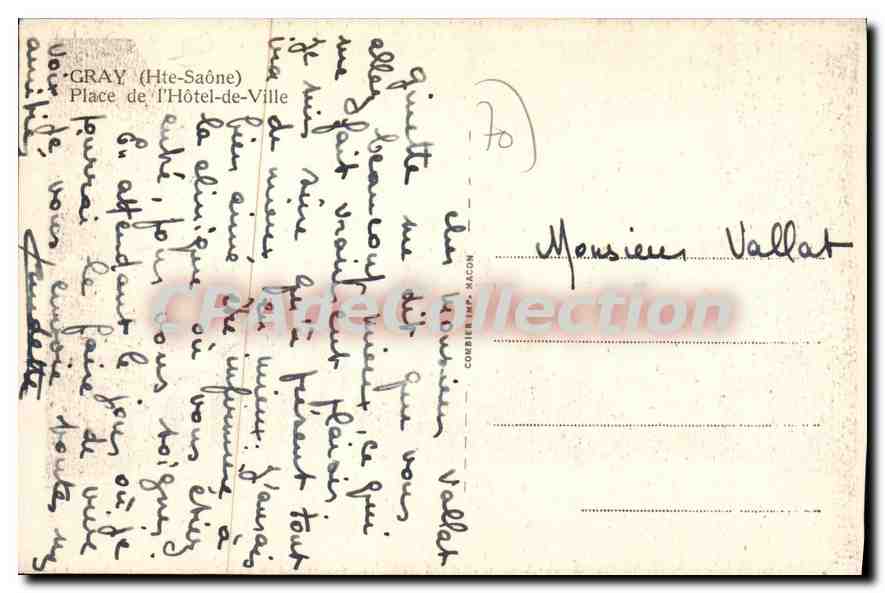 GRAY (Hte-Saône)
Place de l'Hôtel-de-Ville
70
Monsieur Vallat
COMBIER IMP. MACON
CPAdeCollection
cher Monsieur Vallat
Ginette me dit que vous
allez beaucoup mieux, ce qui
me fait vraiment plaisir.
Je suis sûre qu'à présent tout
ira de mieux en mieux. J'aurais
bien aimé être infirmière à
la clinique où vous étiez
entré, pour vous soigner.
En attendant le jour où je
pourrai le faire de vive
voix je vous envoie toutes mes
amitiés.